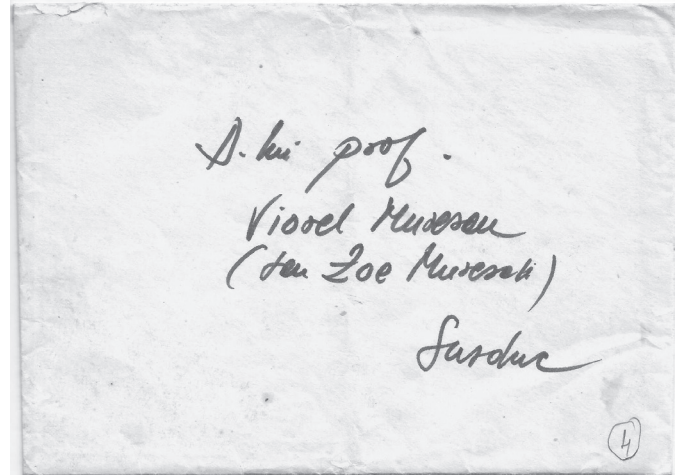 D. lui prof.
Viorel Muresan
(sau Zoe Muresan)
Surduc
4